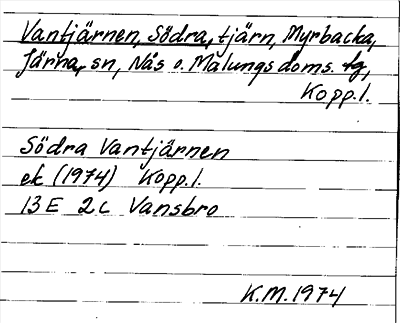 Vantjärnen, Södra, tjärn, Myrbacka,
Järna, sn, Nås o. Malungs doms. tg,
Kopp.l.
Södra Vantjärnen
ek (1974) Kopp.l.
13E 2c Vansbro
K.M. 1974